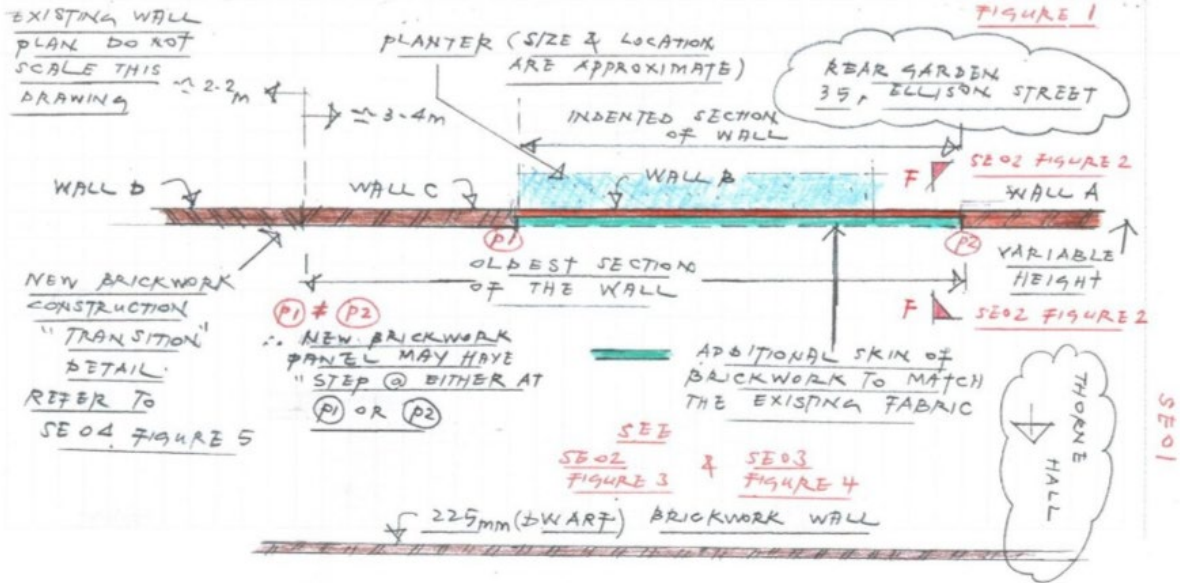 EXISTING WALL
PLAN DO NOT
SCALE THIS
DRAWING
≃ 2.2m
≃ 3.4m
PLANTER (SIZE & LOCATION
ARE APPROXIMATE)
FIGURE 1
REAR GARDEN
35, ELLISON STREET
INDENTED SECTION
OF WALL
WALL D
WALL C
WALL B
F
SE02 FIGURE 2
WALL A
P1
P2
OLDEST SECTION
OF THE WALL
VARIABLE
HEIGHT
F
SE02 FIGURE 2
NEW BRICKWORK
CONSTRUCTION
"TRANSITION"
DETAIL.
REFER TO
SE04 FIGURE 5
P1 ≠ P2
∴ NEW BRICKWORK
PANEL MAY HAVE
"STEP @ EITHER AT
P1 OR P2
ADDITIONAL SKIN OF
BRICKWORK TO MATCH
THE EXISTING FABRIC
SEE
SE02
FIGURE 3
&
SE03
FIGURE 4
THORNE
HALL
SE01
225mm (DWARF) BRICKWORK WALL